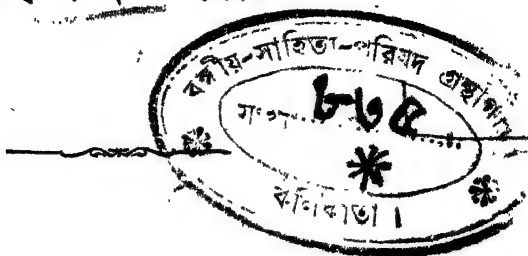 বঙ্গীয়-সাহিত্য-পরিষদ গ্রন্থাগার
৮৩৫
কলিকাতা ।